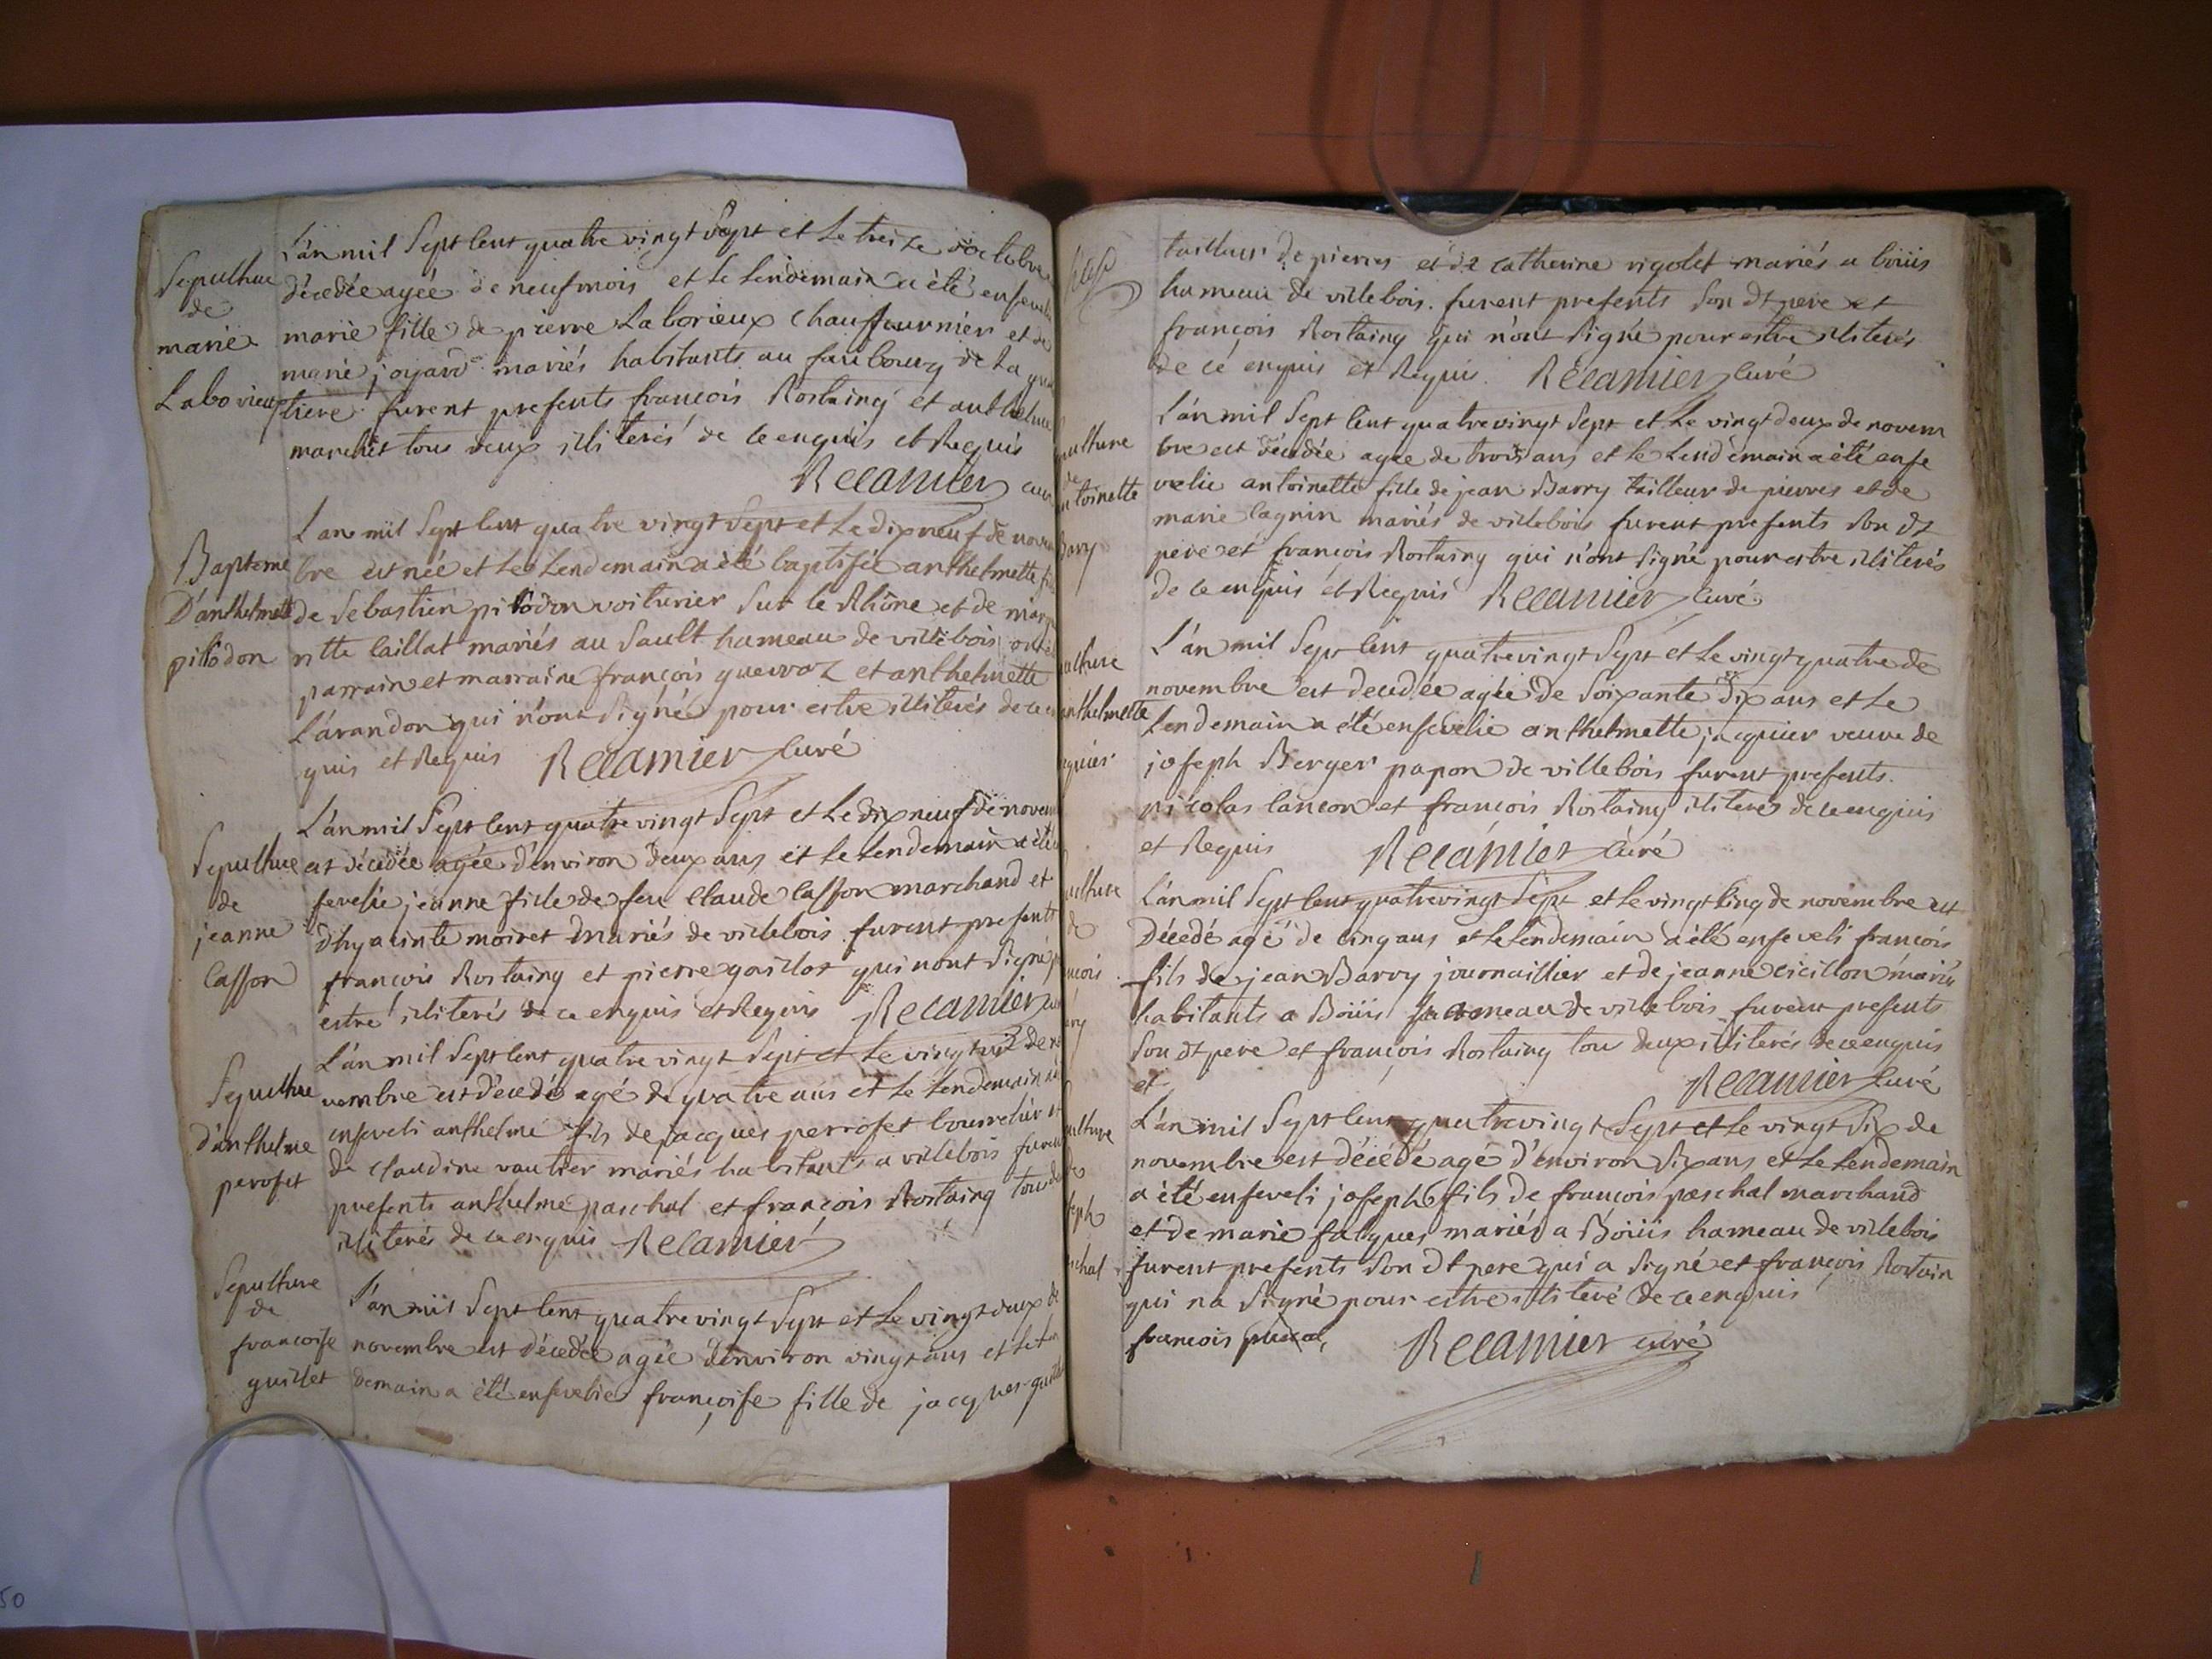 Sepulture
de
marie
Laborieux
L'an mil Sept Cent quatre vingt Sept et Le treize d'octobre
décédée agée de neuf mois et le lendemain a été
marie fille de pierre Laborieux Chauffournier et de
marie joyard mariés habitants au faubourg de la
furent presents francois Rostaing et anthelme
marchet tous deux illiterés de ce enquis et Requis
Récamier curé
Bapteme
D'anthelmette
pittodon
L'an mil Sept Cent quatre vingt Sept et Le dix neuf de
bre est née et Le Lendemain a été baptisée anthelmette
de Sebastien pittodon voiturier Sur le Rhône et de
ritte Caillat mariés au Sault hameau de villebois
parrain et marraine françois quervoz et anthelmette
Lárandon qui n'ont Signé pour estre illiterés de
quis et Requis Récamier Curé
Sepulture
de
jeanne
Casson
L'an mil Sept Cent quatre vingt Sept et Le dix neuf de
est décédée agée d'environ deux ans et Le Lendemain a été
sevelie jeanne fille de feu Claude Casson marchand et
d'hyacinte moiret mariés de villebois furent presents
françois Rostaing et pierre gaillot qui n'ont Signé
estre illiterés de ce enquis et Requis Récamier
Sepulture
d'anthelme
perofet
L'an mil Sept Cent quatre vingt Sept et Le vingt de
vembre est décédé agé de quatre ans et Le Lendemain
enseveli anthelme fils de jacques perrofet bourrelier et
de Claudine vautier mariés habitants a villebois
presents anthelme paschal et françois Rostaing
illiterés de ce enquis Récamier
Sepulture
de
francoise
guillet
L'an mil Sept Cent quatre vingt Sept et Le vingt deux de
novembre est décédée agée d'environ vingt ans et
demain a été ensevelie françoise fille de jacques
tailleur de pierres et de Catherine rigolet mariés a boüis
hameau de villebois. furent presents Son dt pere et
françois Rostaing qui n'ont Signé pour estre illiterés
de cé enquis et Requis. Récamier Curé
L'an mil Sept Cent quatre vingt Sept et Le vingt deux de novem
bre est décédée agée de trois ans et le Lendemain a été ense
velie antoinette fille de jean Barry tailleur de pierres et de
marie Cagnin mariés de villebois furent presents Son dt
pere et françois Rostaing qui n'ont Signé pour estre illiterés
de ce enquis et Requis Récamier Curé
L'an mil Sept Cent quatre vingt Sept et Le vingt quatre de
novembre est decedée agée de Soixante dix ans et Le
Lendemain a été ensevelie anthelmette jacquier veuve de
joseph Berger papon de villebois furent presents.
nicolas lancon et francois Rostaing illiterés de ce enquis
et Requis Récamier Curé
L'an mil Sept Cent quatre vingt Sept et Le vingt Cinq de novembre est
Décedé agé de Cinq ans et le Lendemain a été enseveli françois
fils de jean Barry journaillier et de jeanne mariés
habitants a Boüis hameau de villebois furent presents
Son dt pere et françois Rostaing tou deux illiterés de ce enquis
et Récamier Curé
L'an mil Sept Cent quatre vingt Sept et Le vingt Six de
novembre est décédé agé d'environ Six ans et Le Lendemain
a été enseveli joseph fils de françois paschal marchand
et de marie falques mariés a Boüis hameau de villebois
furent presents Son dt pere qui a Signé et françois Rostain
qui na Signé pour estre illiteré de ce enquis
francois Récamier curé